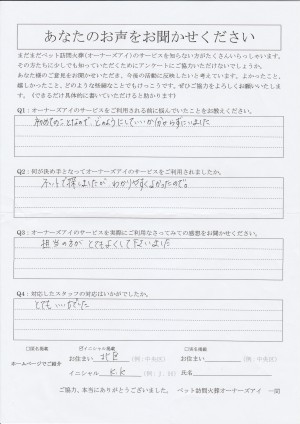 あなたのお声をお聞かせください
まだまだペット訪問火葬(オーナーズアイ)のサービスを知らない方がたくさんいらっしゃいます。
その方たちに少しでも知っていただくためにアンケートにご協力いただけないでしょうか。
あなた様のご意見をお聞かせいただき、今後の活動に反映したいと考えています。よかったこと、
嬉しかったこと、どのような些細なことでもけっこうです。ぜひご協力をよろしくお願いいたします。(できるだけ具体的に書いていただけると助かります)
Q1:オーナーズアイのサービスをご利用される前に悩んでいたことをお教えください。
初めてのことなので、どのようにしていいか分からずにいました
Q2:何が決め手となってオーナーズアイのサービスをご利用されましたか。
ネットで探しましたが わかりやすくよかったので。
Q3:オーナーズアイのサービスを実際にご利用なさってみての感想をお聞かせください。
担当の方が とてもよくしてくださいました
Q4:対応したスタッフの対応はいかがでしたか。
とても いい方でした
□匿名掲載 ☑イニシャル掲載 □実名掲載
ホームページでご紹介
お住まい 北区 (例:中央区) お住まい (例:中央区)
イニシャル K.K (例:J.M) 氏名
ご協力、本当にありがとうございました。 ペット訪問火葬オーナーズアイ 一同